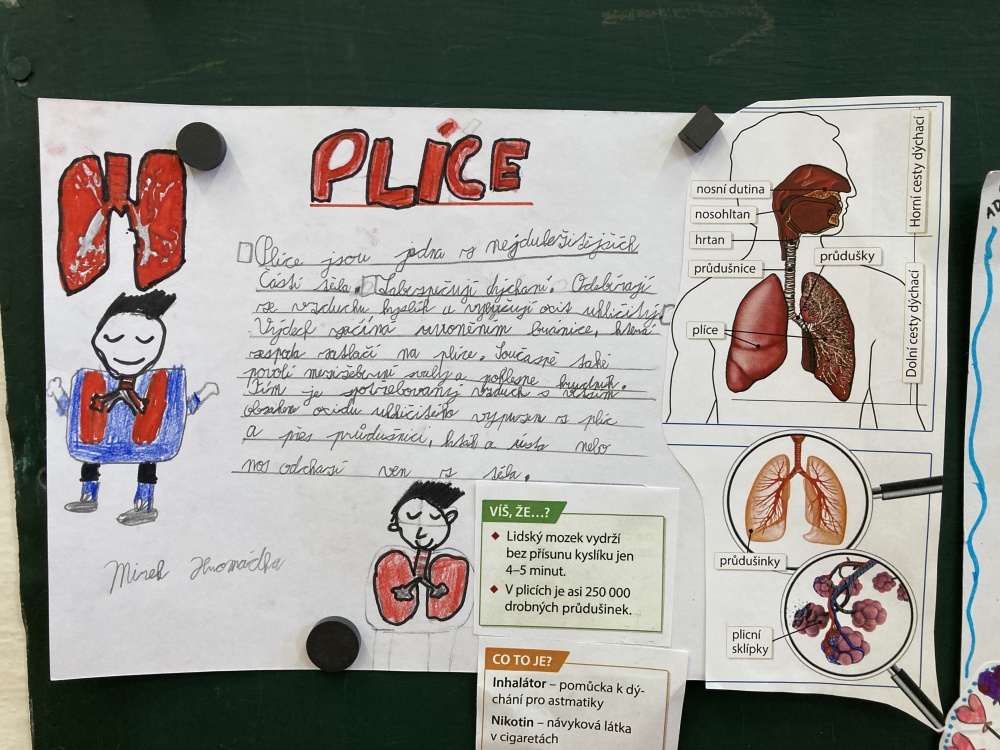 PLÍCE
Plíce jsou jedna z nejduležitějších
částí těla. Zabezpečují dýchaní. Odebírají
ze vzduchu kyslík a vylučují oxid uhličitý.
Výdech začíná uvolněním bránice, která
zespoda zatlačí na plíce. Současně také
povolí mezižeberní svaly a poklesne hrudník.
Tím je spotřebovaný vzduch s větším
obsahem oxidu uhličitého vypuzen z plic
a přes průdušnici, hrtan a ústa nebo
nos odchází ven z těla.
Mirek Hromádka
VÍŠ, ŽE...?
Lidský mozek vydrží
bez přísunu kyslíku jen
4–5 minut.
V plicích je asi 250 000
drobných průdušinek.
CO TO JE?
Inhalátor – pomůcka k dý-
chání pro astmatiky
Nikotin – návyková látka
v cigaretách
nosní dutina
nosohltan
hrtan
průdušnice
průdušky
plíce
Horní cesty dýchací
Dolní cesty dýchací
průdušinky
plicní
sklípky